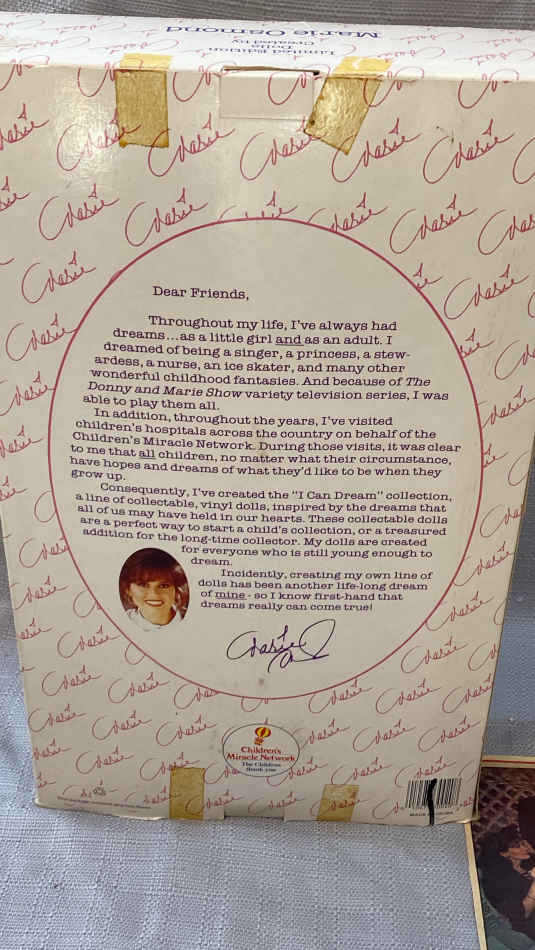 Marie Osmond
Created by
Dolls
Limited Edition
Dear Friends,
Throughout my life, I've always had
dreams...as a little girl and as an adult. I
dreamed of being a singer, a princess, a stew-
ardess, a nurse, an ice skater, and many other
wonderful childhood fantasies. And because of The
Donny and Marie Show variety television series, I was
able to play them all.
In addition, throughout the years, I've visited
children's hospitals across the country on behalf of the
Children's Miracle Network. During those visits, it was clear
to me that all children, no matter what their circumstance,
have hopes and dreams of what they'd like to be when they
grow up.
Consequently, I've created the "I Can Dream" collection,
a line of collectable, vinyl dolls, inspired by the dreams that
all of us may have held in our hearts. These collectable dolls
are a perfect way to start a child's collection, or a treasured
addition for the long-time collector. My dolls are created
for everyone who is still young enough to
dream.
Incidently, creating my own line of
dolls has been another life-long dream
of mine - so I know first-hand that
dreams really can come true!
Marie
Children's
Miracle Network
The Children
thank you
MADE IN CHINA